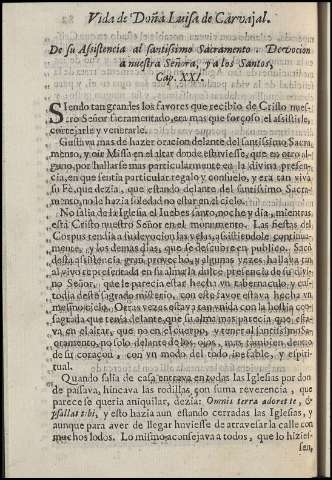 Vida de Doña Luisa de Carvajal.
De su Asistencia al santissimo Sacramento. Devocion
a nuestra Señora, y a los Santos,
Cap. XXI.
SIendo tan grandes los favores que recibio de Cristo nues-
tro Señor sacramentado, era mas que forçoso el asistirle,
cortejarle y venerarle.
Gustava mas de hazer oracion delante del santissimo Sacra-
mento, y oir Missa en el altar donde estuviesse, que en otro al-
guno, por hallarse mas particularmente en la divina presen-
cia, en que sentia particular regalo y consuelo, y era tan viva
su Fè, que dezia, que estando delante del santissimo Sacra-
mento, no le hazia soledad no estar en el cielo.
No salia de la Iglesia el Iuebes santo, noche y dia, mientras
està Cristo nuestro Señor en el monumento. Las fiestas del
Corpus tendia a su devocion las velas, asistiendole continua-
mente, y los demas dias, que se descubre en publico. Sacò
desta asistencia gran provecho, y algunas vezes hallava tan
al vivo representada en su alma la dulce presencia de su divi-
no Señor, que le parecia estar hecha un tabernaculo, y cus-
todia deste sagrado misterio, con este favor estava hecha un
mesmo cielo. Otras vezes estava tan unida con la hostia con-
sagrada que tenia delante, que su alma mas parecia que esta-
va en el altar, que no en el cuerpo, y tener al santissimo Sa-
cramento, no solo delante de los ojos, mas tambien dentro
de su coraçon, con un modo del todo inefable, y espiri-
tual.
Quando salia de casa entrava en todas las Iglesias por don
de passava, hincava las rodillas con suma reverencia, que
parece se queria aniquilar, dezia: Omnis terra adoret te, &
psallat tibi, y esto hazia aun estando cerradas las Iglesias, y
aunque para aver de llegar huviesse de atravesar la calle con
muchos lodos. Lo mismo aconsejava a todos, que lo hizies-
sen,